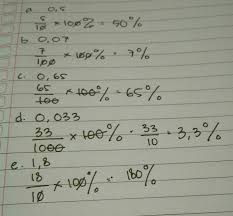 a. 0,5
5/10 × 100% = 50%
b. 0,07
7/100 × 100% = 7%
c. 0,65
65/100 × 100% = 65%
d. 0,033
33/1000 × 100% = 33/10 = 3,3%
e. 1,8
18/10 × 100% = 180%